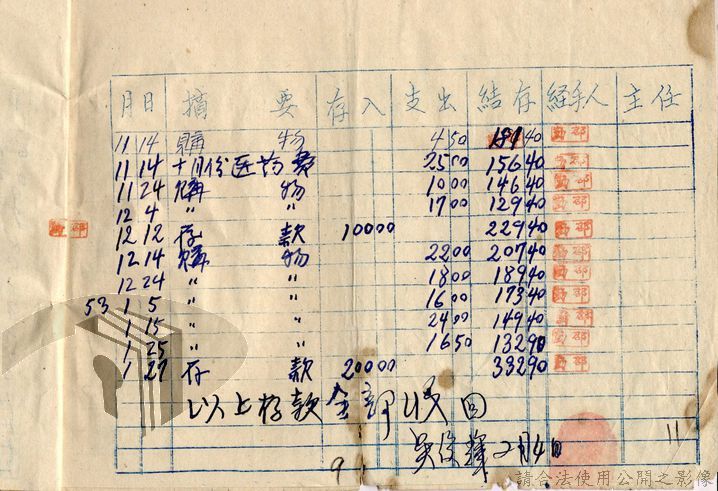 月 日 摘 要 存入 支出 結存 経手人 主任
11 14 購 物 450 18140
11 14 十月份医药費 2500 15640
11 24 購 物 1000 14640
12 4 〃 〃 1700 12940
12 12 存 款 10000 22940
12 14 購 物 2200 20740
12 24 〃 〃 1800 18940
53 1 5 〃 〃 1600 17340
1 15 〃 〃 2400 14940
1 25 〃 〃 1650 13290
1 27 存 款 20000 33290
以上存款全部收回
吳俊輝 2月4日
11
9
請合法使用公開之影像